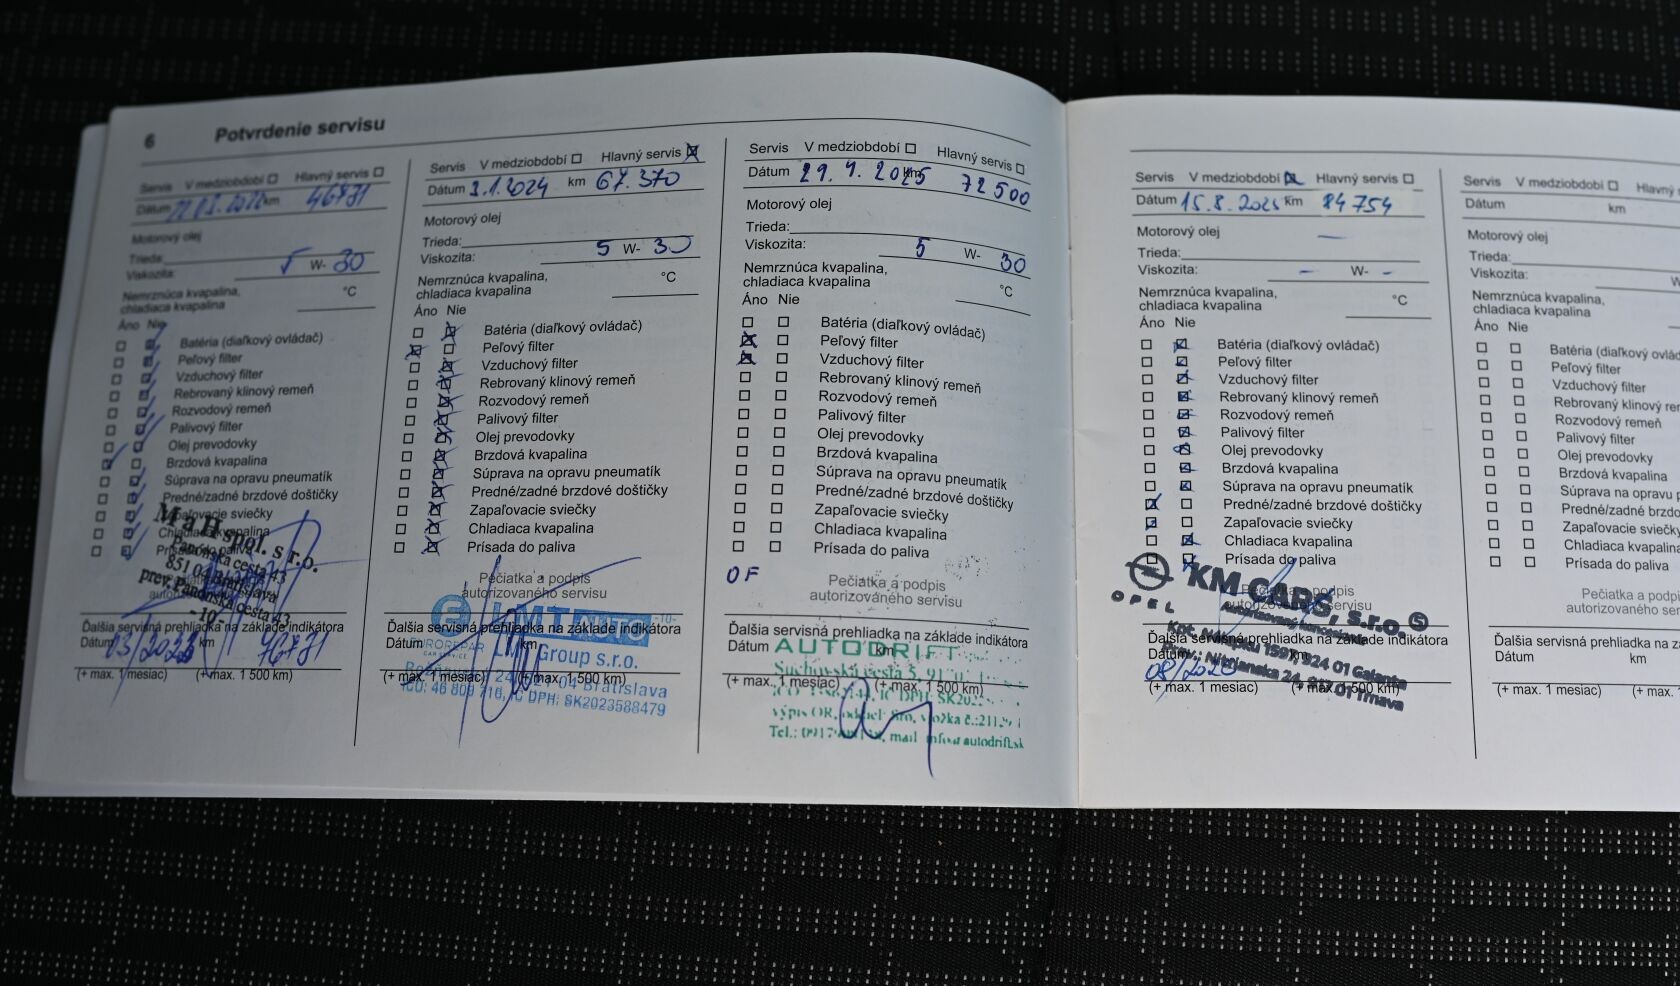 6 Potvrdenie servisu
Servis V medziobdobí Hlavný servis
Dátum km 46781
Motorový olej
Trieda:
Viskozita: 5 W- 30
Nemrznúca kvapalina,
chladiaca kvapalina °C
Áno Nie
Batéria (diaľkový ovládač)
Peľový filter
Vzduchový filter
Rebrovaný klinový remeň
Rozvodový remeň
Palivový filter
Olej prevodovky
Brzdová kvapalina
Súprava na opravu pneumatík
Predné/zadné brzdové doštičky
Zapaľovacie sviečky
Chladiaca kvapalina
Prísada do paliva
MaH spol. s r.o.
Panónska cesta 43
851 04 Bratislava
prev. Panónska cesta 43
- 10 -
Ďalšia servisná prehliadka na základe indikátora
Dátum 03/2023 km 76781
(+ max. 1 mesiac) (+ max. 1 500 km)
Servis V medziobdobí Hlavný servis
Dátum 2.1.2024 km 67.370
Motorový olej
Trieda:
Viskozita: 5 W- 30
Nemrznúca kvapalina,
chladiaca kvapalina °C
Áno Nie
Batéria (diaľkový ovládač)
Peľový filter
Vzduchový filter
Rebrovaný klinový remeň
Rozvodový remeň
Palivový filter
Olej prevodovky
Brzdová kvapalina
Súprava na opravu pneumatík
Predné/zadné brzdové doštičky
Zapaľovacie sviečky
Chladiaca kvapalina
Prísada do paliva
Pečiatka a podpis
autorizovaného servisu
LMT AUTO
Ďalšia servisná prehliadka na základe indikátora
Dátum km
EUROREPAR
CAR SERVICE
LMT Group s.r.o.
(+ max. 1 mesiac) (+ max. 1 500 km)
04 Bratislava
IČO: 46 809 716, IČ DPH: SK2023588479
Servis V medziobdobí Hlavný servis
Dátum 29.4.2025 km 72500
Motorový olej
Trieda:
Viskozita: 5 W- 30
Nemrznúca kvapalina,
chladiaca kvapalina °C
Áno Nie
Batéria (diaľkový ovládač)
Peľový filter
Vzduchový filter
Rebrovaný klinový remeň
Rozvodový remeň
Palivový filter
Olej prevodovky
Brzdová kvapalina
Súprava na opravu pneumatík
Predné/zadné brzdové doštičky
Zapaľovacie sviečky
Chladiaca kvapalina
Prísada do paliva
OF
Pečiatka a podpis
autorizovaného servisu
Ďalšia servisná prehliadka na základe indikátora
Dátum km
AUTODRIFT
(+ max. 1 mesiac) (+ max. 1 500 km)
Servis V medziobdobí Hlavný servis
Dátum 15.8.2025 km 84754
Motorový olej -
Trieda:
Viskozita: - W- -
Nemrznúca kvapalina,
chladiaca kvapalina °C
Áno Nie
Batéria (diaľkový ovládač)
Peľový filter
Vzduchový filter
Rebrovaný klinový remeň
Rozvodový remeň
Palivový filter
Olej prevodovky
Brzdová kvapalina
Súprava na opravu pneumatík
Predné/zadné brzdové doštičky
Zapaľovacie sviečky
Chladiaca kvapalina
Prísada do paliva
OPEL
KM CARS, s.r.o. 5
Ďalšia servisná prehliadka na základe indikátora
Dátum km
Kpt. Nálepku 1597, 924 01 Galanta
Prev.: Nitrianska 24, 917 01 Trnava
(+ max. 1 mesiac) (+ max. 1 500 km)
Servis V medziobdobí
Dátum km
Motorový olej
Trieda:
Viskozita:
Nemrznúca kvapalina,
chladiaca kvapalina
Áno Nie
Batéria (diaľkový
Peľový filter
Vzduchový filter
Rebrovaný klinový
Rozvodový remeň
Palivový filter
Olej prevodovky
Brzdová kvapalina
Súprava na opravu
Predné/zadné
Zapaľovacie sviečky
Chladiaca kvapalina
Prísada do paliva
Ďalšia servisná prehliadka na
Dátum km
(+ max. 1 mesiac) (+ max.